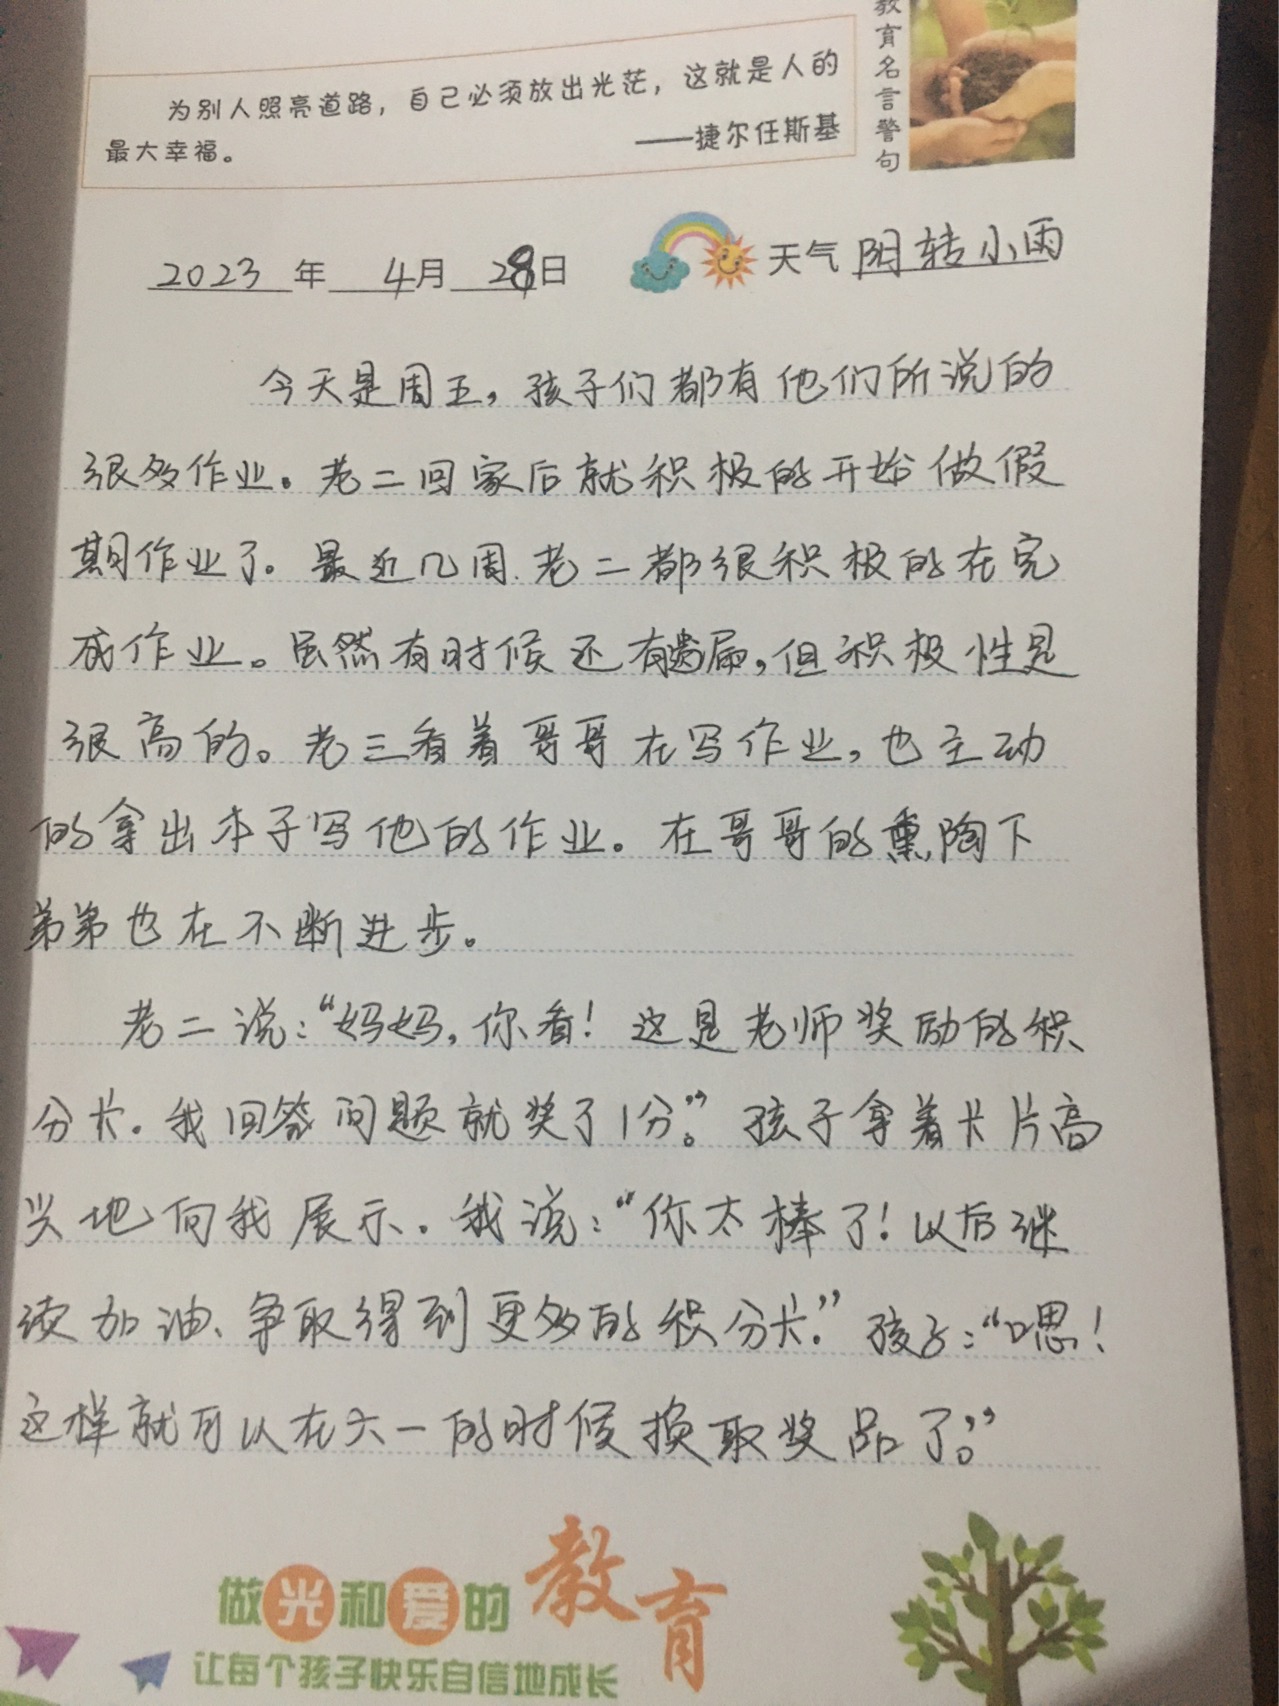 教育名言警句
为别人照亮道路，自己必须放出光芒，这就是人的
最大幸福。
——捷尔任斯基
2023年 4月 28日 天气 阴转小雨
今天是周五，孩子们都有他们所说的
很多作业。老二回家后就积极的开始做假
期作业了。最近几周老二都很积极的在完
成作业。虽然有时候还有遗漏，但积极性是
很高的。老三看着哥哥在写作业，也主动
的拿出本子写他的作业。在哥哥的熏陶下
弟弟也在不断进步。
老二说：“妈妈，你看！这是老师奖励的积
分卡。我回答问题就奖了1分。”孩子拿着卡片高
兴地向我展示。我说：“你太棒了！以后继
续加油、争取得到更多的积分卡。”孩子：“嗯！
这样就可以在六一的时候换取奖品了。”
做光和爱的教育
让每个孩子快乐自信地成长